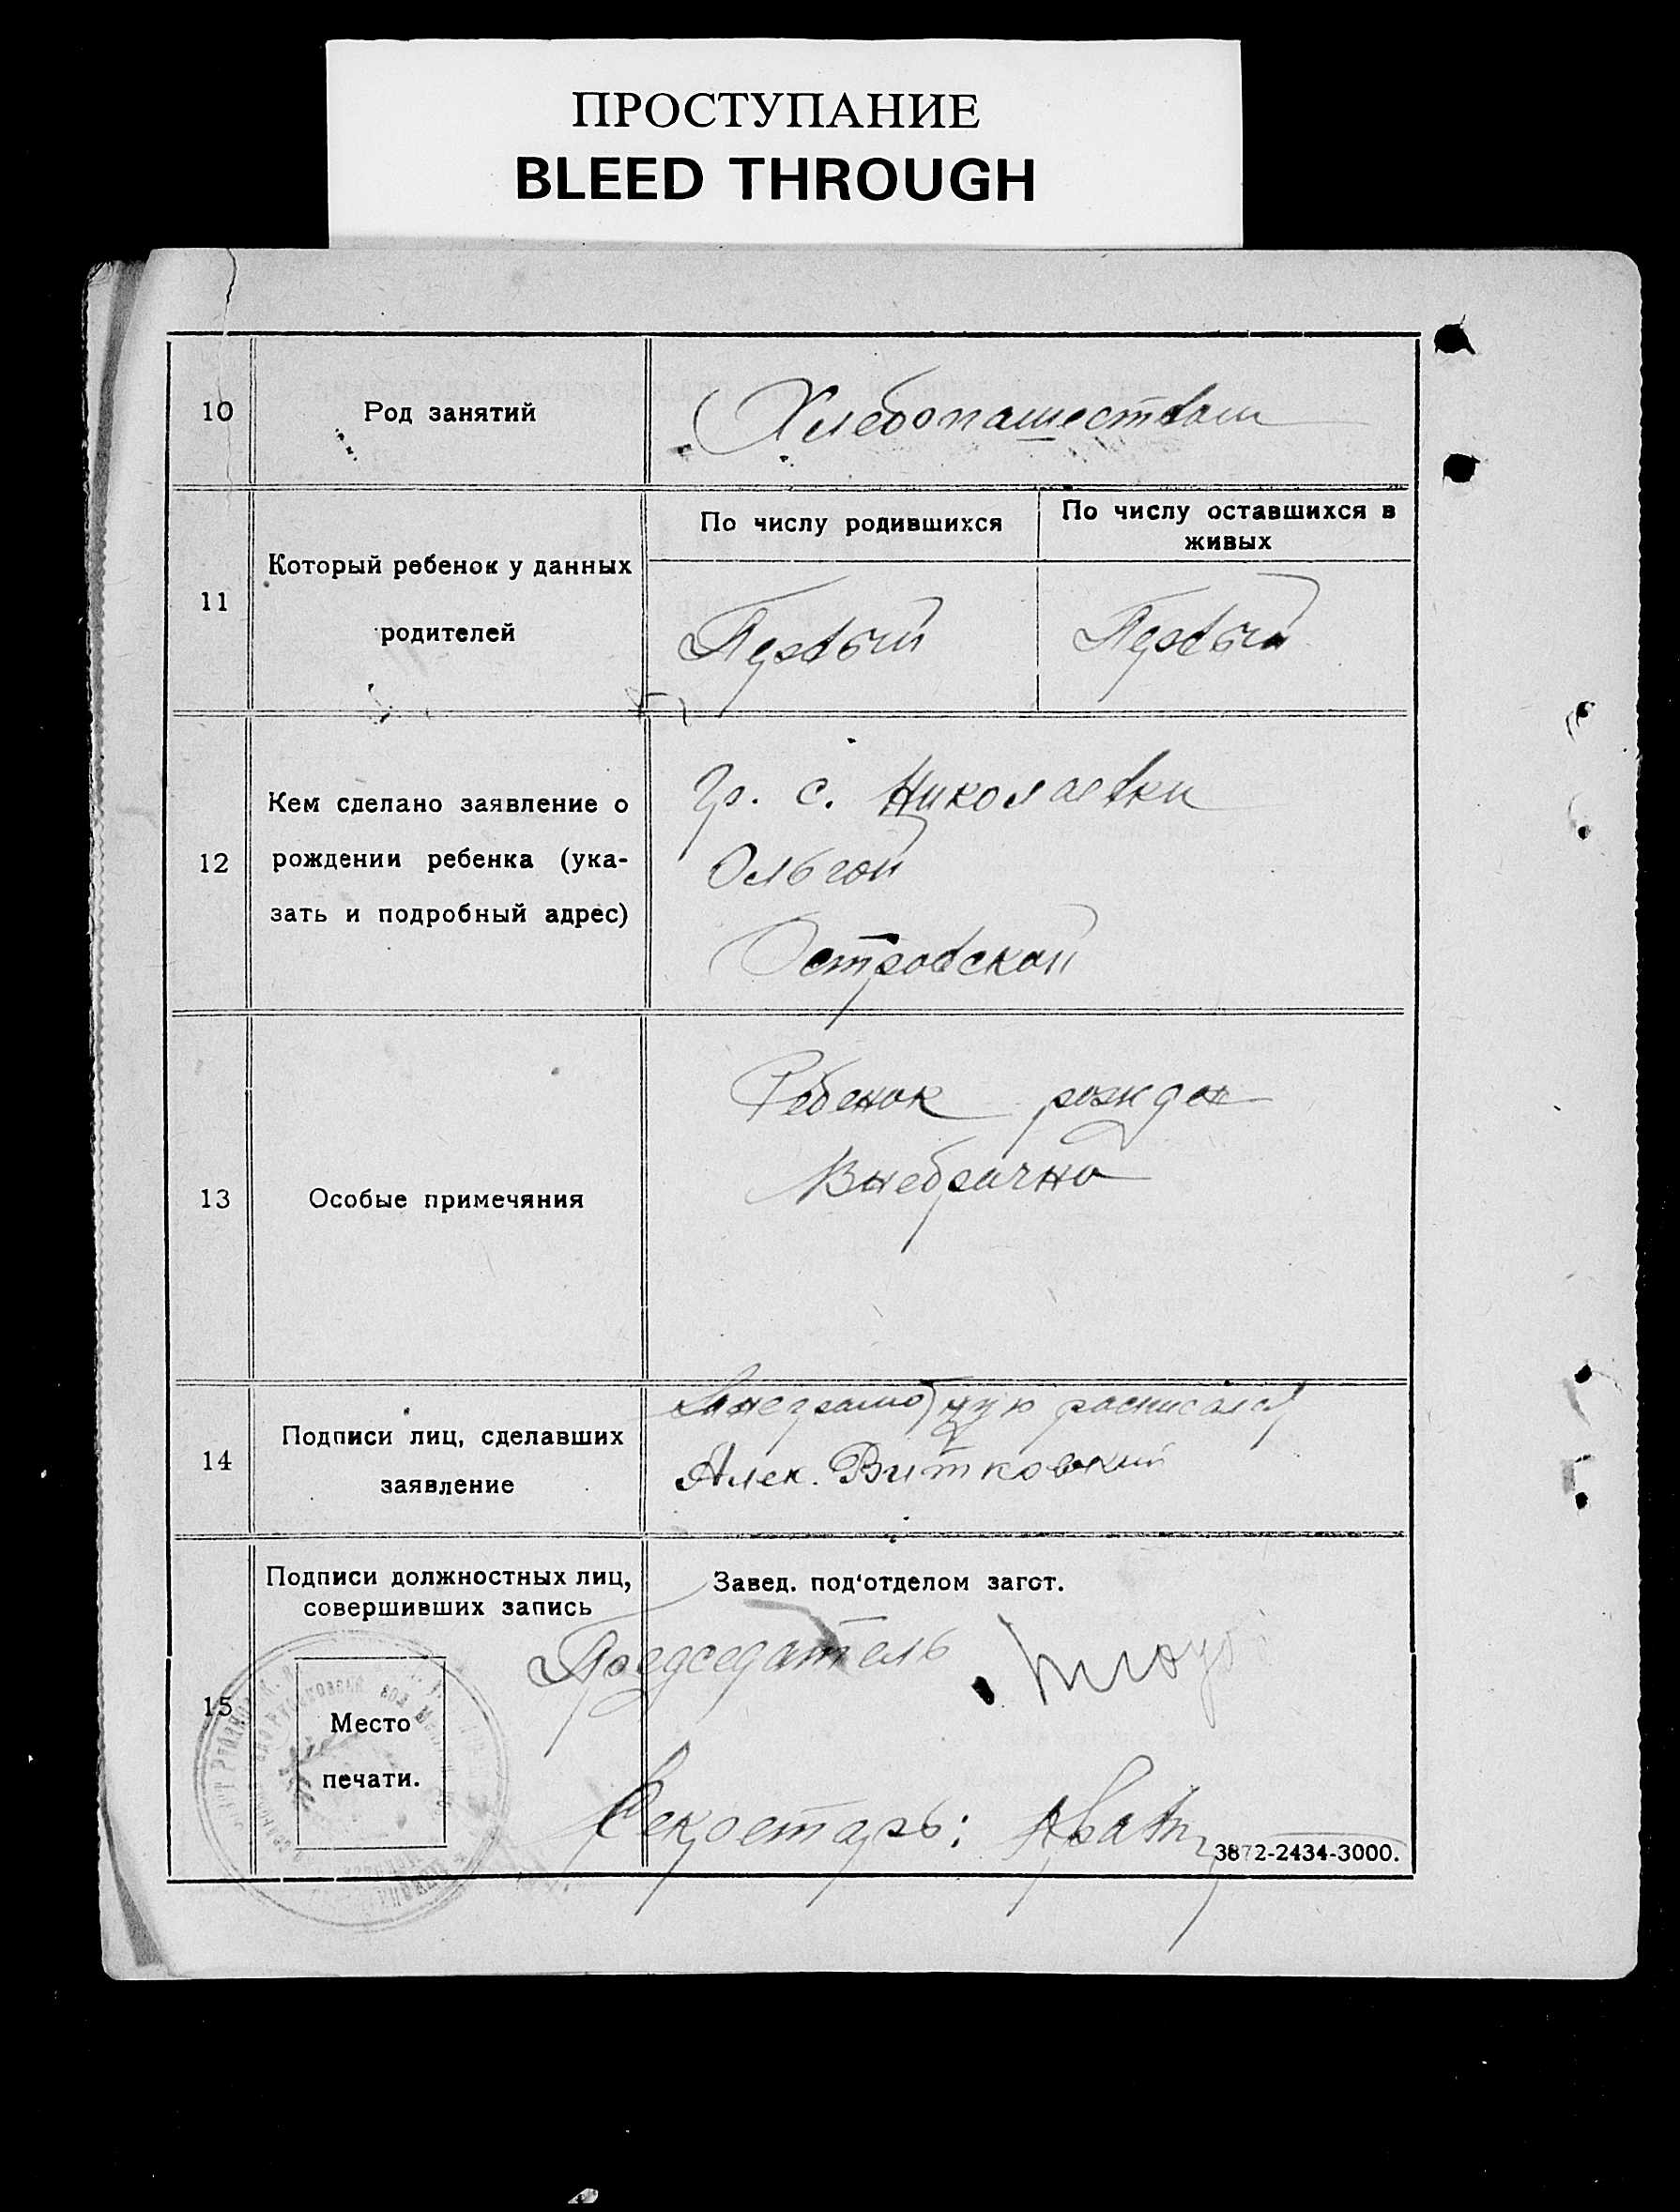 ПРОСТУПАНИЕ
BLEED THROUGH
10 Род занятий Хлебопашеством
11 Который ребенок у данных родителей
По числу родившихся
По числу оставшихся в живых
Первый
Первый
12 Кем сделано заявление о
рождении ребенка (ука-
зать и подробный адрес)
Гр. с. Николаевки
Ольгой
Островской
13 Особые примечяния
Ребенок рожден
Внебрачно
14 Подписи лиц, сделавших
заявление
За неграмотную расписался
Алек. Витковский
15 Подписи должностных лиц,
совершивших запись
Место
печати.
Завед. под'отделом загст.
Председатель
Секретарь:
3872-2434-3000.